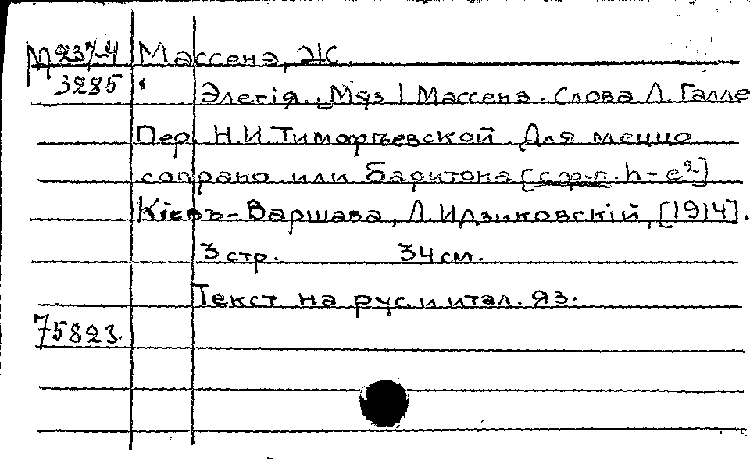 М 237-4 Массена, Ж.
3285 Элегія. Муз. Массена. Слова Л. Галле
Пер. Н.И. Тимофѣевской. Для меццо
сопрано или баритона [с ф-п. h-e²]
Кіевъ-Варшава, Л. Идзиковскій, [1914].
3 стр. 34 см.
Текст на рус. и итал. яз.
75823.